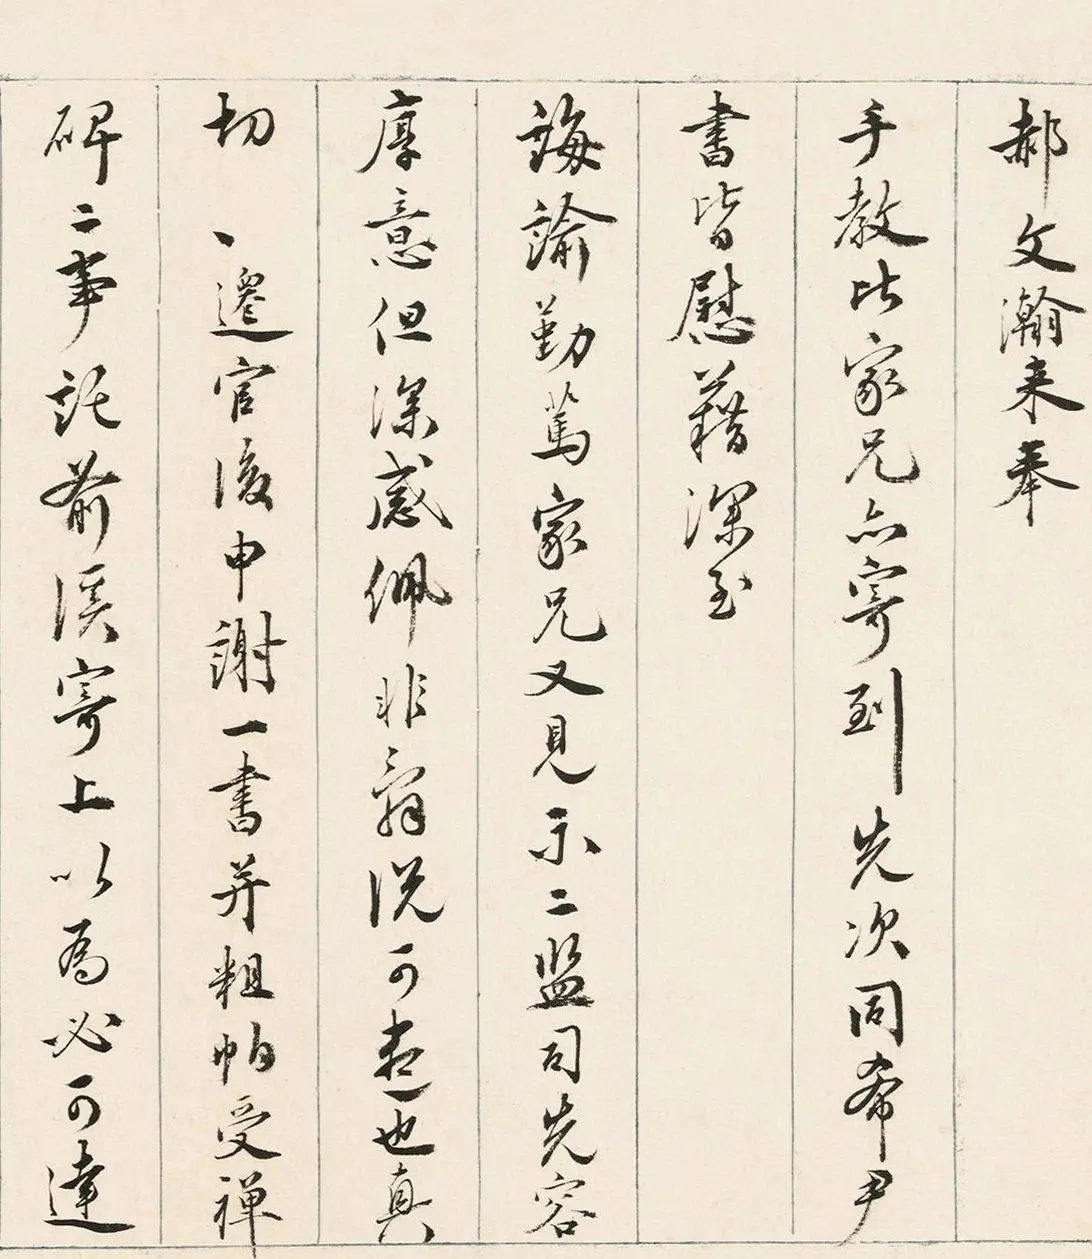 郝文瀚来奉
手教比家兄亦寄到先次同希尹
書皆慰藉深至
誨諭勤篤家兄又見示二监司先容
厚意但深感佩非翰说可盡也真
切、遷官後申謝一書并粗帕受禅
碑二事託俞溪寄上以為必可達